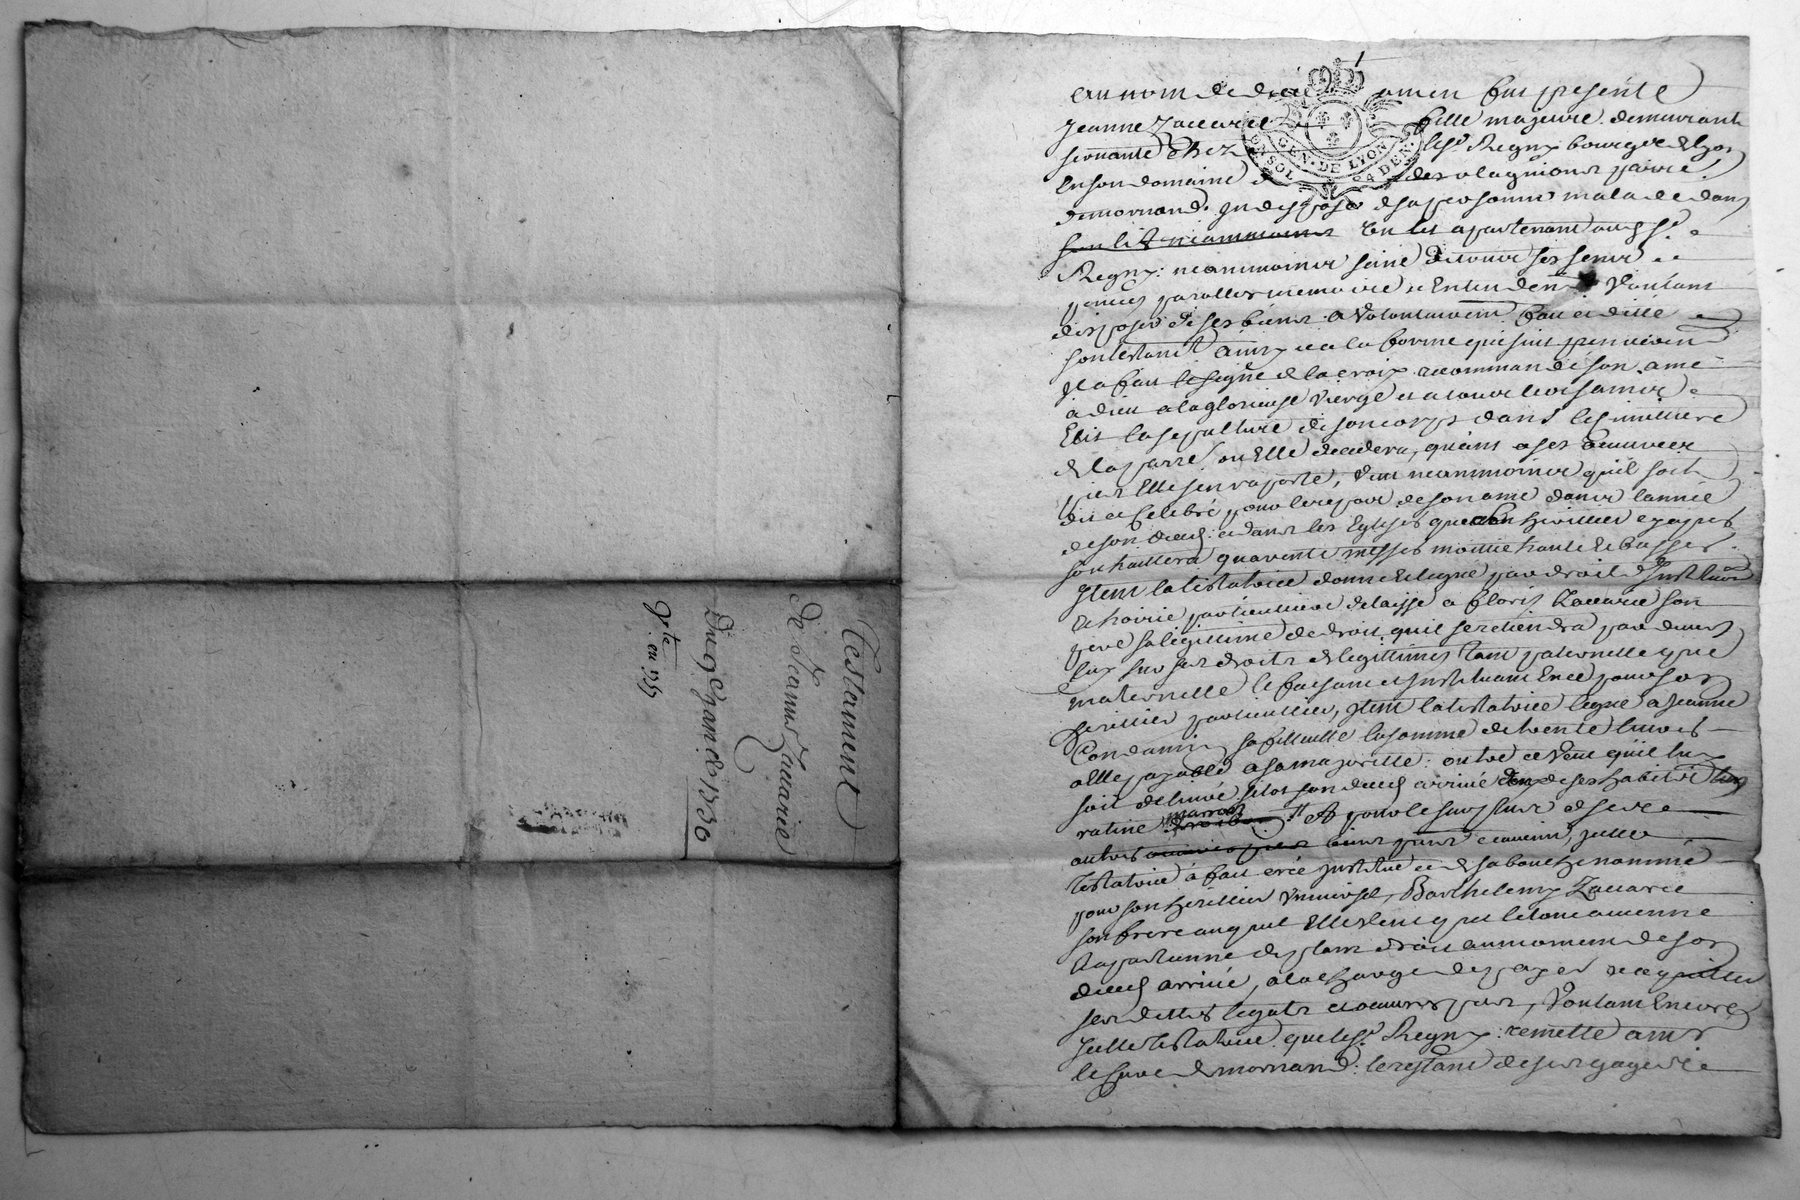 Testament
de Jeanne Zacarie
Du 9 mars 1730
au nom de dieu amen fut presente
Jeanne Zacarie fille majeure demeurant
servante chez le sr Regny bourgois de lyon
en son domaine des plagnions parroisse
de mornand. Indisposée de sa personne malade dans
son lit neanmoins un lit apartenant aud sr
Regny: neanmoins saine de tous ses sens
parolles memoire et entendent Voulant
disposer de ses biens a volontairem fait et dicté
son testament ainsy et a la forme que suit premierem
Il a fait le signe de la croix recommandé son ame
a dieu a la glorieuse vierge et a tous les saints
Elit la sepulture de son corps dans le cimitiere
de la parre ou Elle decedera, quant a ses oeuvres
pies Elle sen raporte, veut neanmoins quil soit
dit et celebré pour le repos de son ame dans lannée
de son deces et dans les Eglises que son heritier
souhaittera quarente messes moittie haute et basses
Item la testatrice donne et legue par droit d'Institution
et hoirie particulliere delaisse a Floris Zacarie son
pere sa legittime de droit quil se retiendra par devers
luy sur ses droits et legittimes tant paternelle que
maternelle le faisant et Instituant En ce pour son
heritier particullier, Item la testatrice legue a Jeanne
Condamin sa filleulle la somme de trente livres
a Elle payable a sa majoritté: outre ce veut quil luy
soit delivré sitot son deces arrivé un de ses habits
ratine marron Et pour le surplus de ses
autres biens presents et avenir, Jcelle
testatrice a fait crée Institué et de sa bouche nommé
pour son heritier vniversel, Barthelemy Zacarie
son frere auquel Elle veut que le tout advienne
apartienne de plein droit au moment de son
deces arrivé, a la charge de payer et acquitter
ses dettes legats et oeuvres pies, Voulant Encore
Jcelle testatrice que le sr Regny: remette a mr
le Cure de mornand: le restant de ses gages